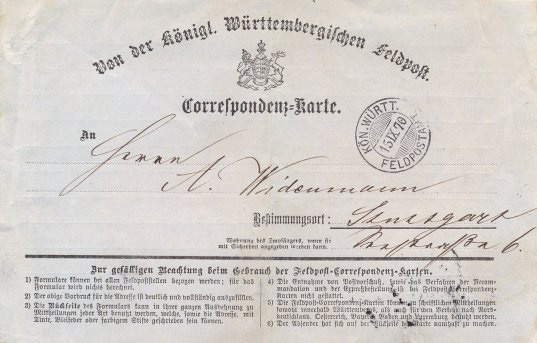 Von der Königl. Württembergischen Feldpost.
Correspondenz-Karte.
KÖN. WÜRTT.
15 IX 70
FELDPOSTAMT
An
Herrn
A. Widenmann
Bestimmungsort: Stuttgart
Wohnung des Empfängers, wenn sie
mit Sicherheit angegeben werden kann.
Seestraße 6.
Zur gefälligen Beachtung beim Gebrauch der Feldpost-Correspondenz-Karten.
1) Formulare können bei allen Feldpoststellen bezogen werden; für das
Formular wird nichts berechnet.
2) Der obige Vordruck für die Adresse ist deutlich und vollständig auszufüllen.
3) Die Rückseite des Formulars kann in ihrer ganzen Ausdehnung zu
Mittheilungen jeder Art benutzt werden, welche, sowie die Adresse, mit
Tinte, Bleifeder oder farbigem Stifte geschrieben sein können.
4) Die Entnahme von Postvorschuß, sowie das Verfahren der Recom-
mandation und der Expreßbestellung ist bei Feldpost-Correspondenz-
Karten nicht gestattet.
5) Die Feldpost-Correspondenz-Karten können zu schriftlichen Mittheilungen
sowohl innerhalb Württemberg, als auch für den Verkehr nach Nord-
deutschland, Oesterreich, Bayern, Baden und Luxemburg benutzt werden.
6) Der Absender hat sich auf der Rückseite der Karte namhaft zu machen.